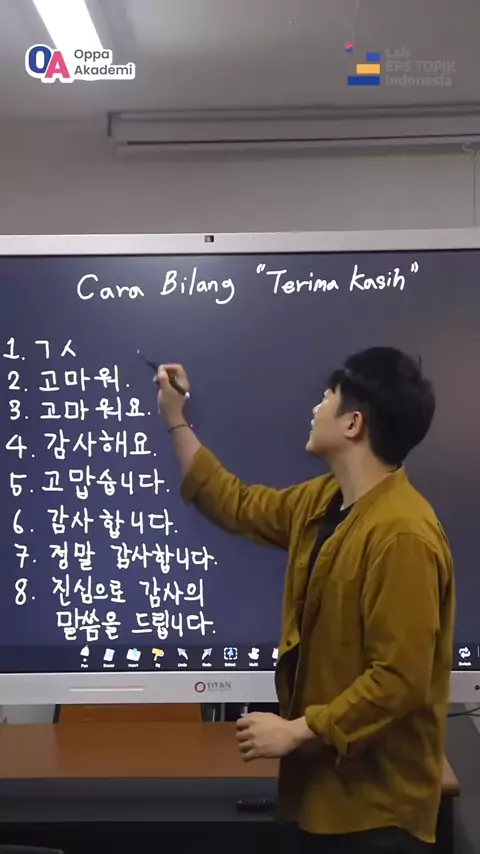 OA Oppa
Akademi
Lab
EPS TOPIK
Indonesia
Cara Bilang "Terima Kasih"
1. ㄱㅅ
2. 고마워.
3. 고마워요.
4. 감사해요.
5. 고맙습니다.
6. 감사합니다.
7. 정말 감사합니다.
8. 진심으로 감사의
말씀을 드립니다.
Pen
Eraser
Undo
Redo
Select
Switch
TITAN